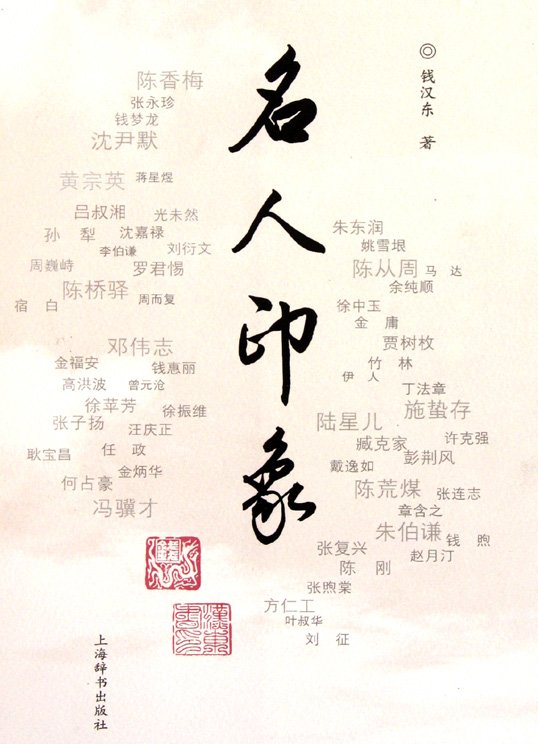 名人印象
◎ 钱汉东 著
陈香梅
张永珍
钱梦龙
沈尹默
黄宗英 蒋星煜
吕叔湘 光未然
孙 犁 沈嘉禄
李伯谦 刘衍文
周巍峙 罗君惕
陈桥驿 周而复
宿 白
邓伟志
金福安 钱惠丽
高洪波 曾元沧
徐苹芳 徐振维
张子扬 汪庆正
耿宝昌 任 政
金炳华
何占豪
冯骥才
朱东润
姚雪垠
陈从周 马 达
余纯顺
徐中玉
金 庸
贾树枚
竹 林
伊 人
丁法章
施蛰存
陆星儿
臧克家 许克强
彭荆风
戴逸如
陈荒煤 张连志
章含之
朱伯谦 钱 煦
张复兴 赵月汀
陈 刚
张煦棠
方仁工
叶叔华
刘 征
上海辞书出版社